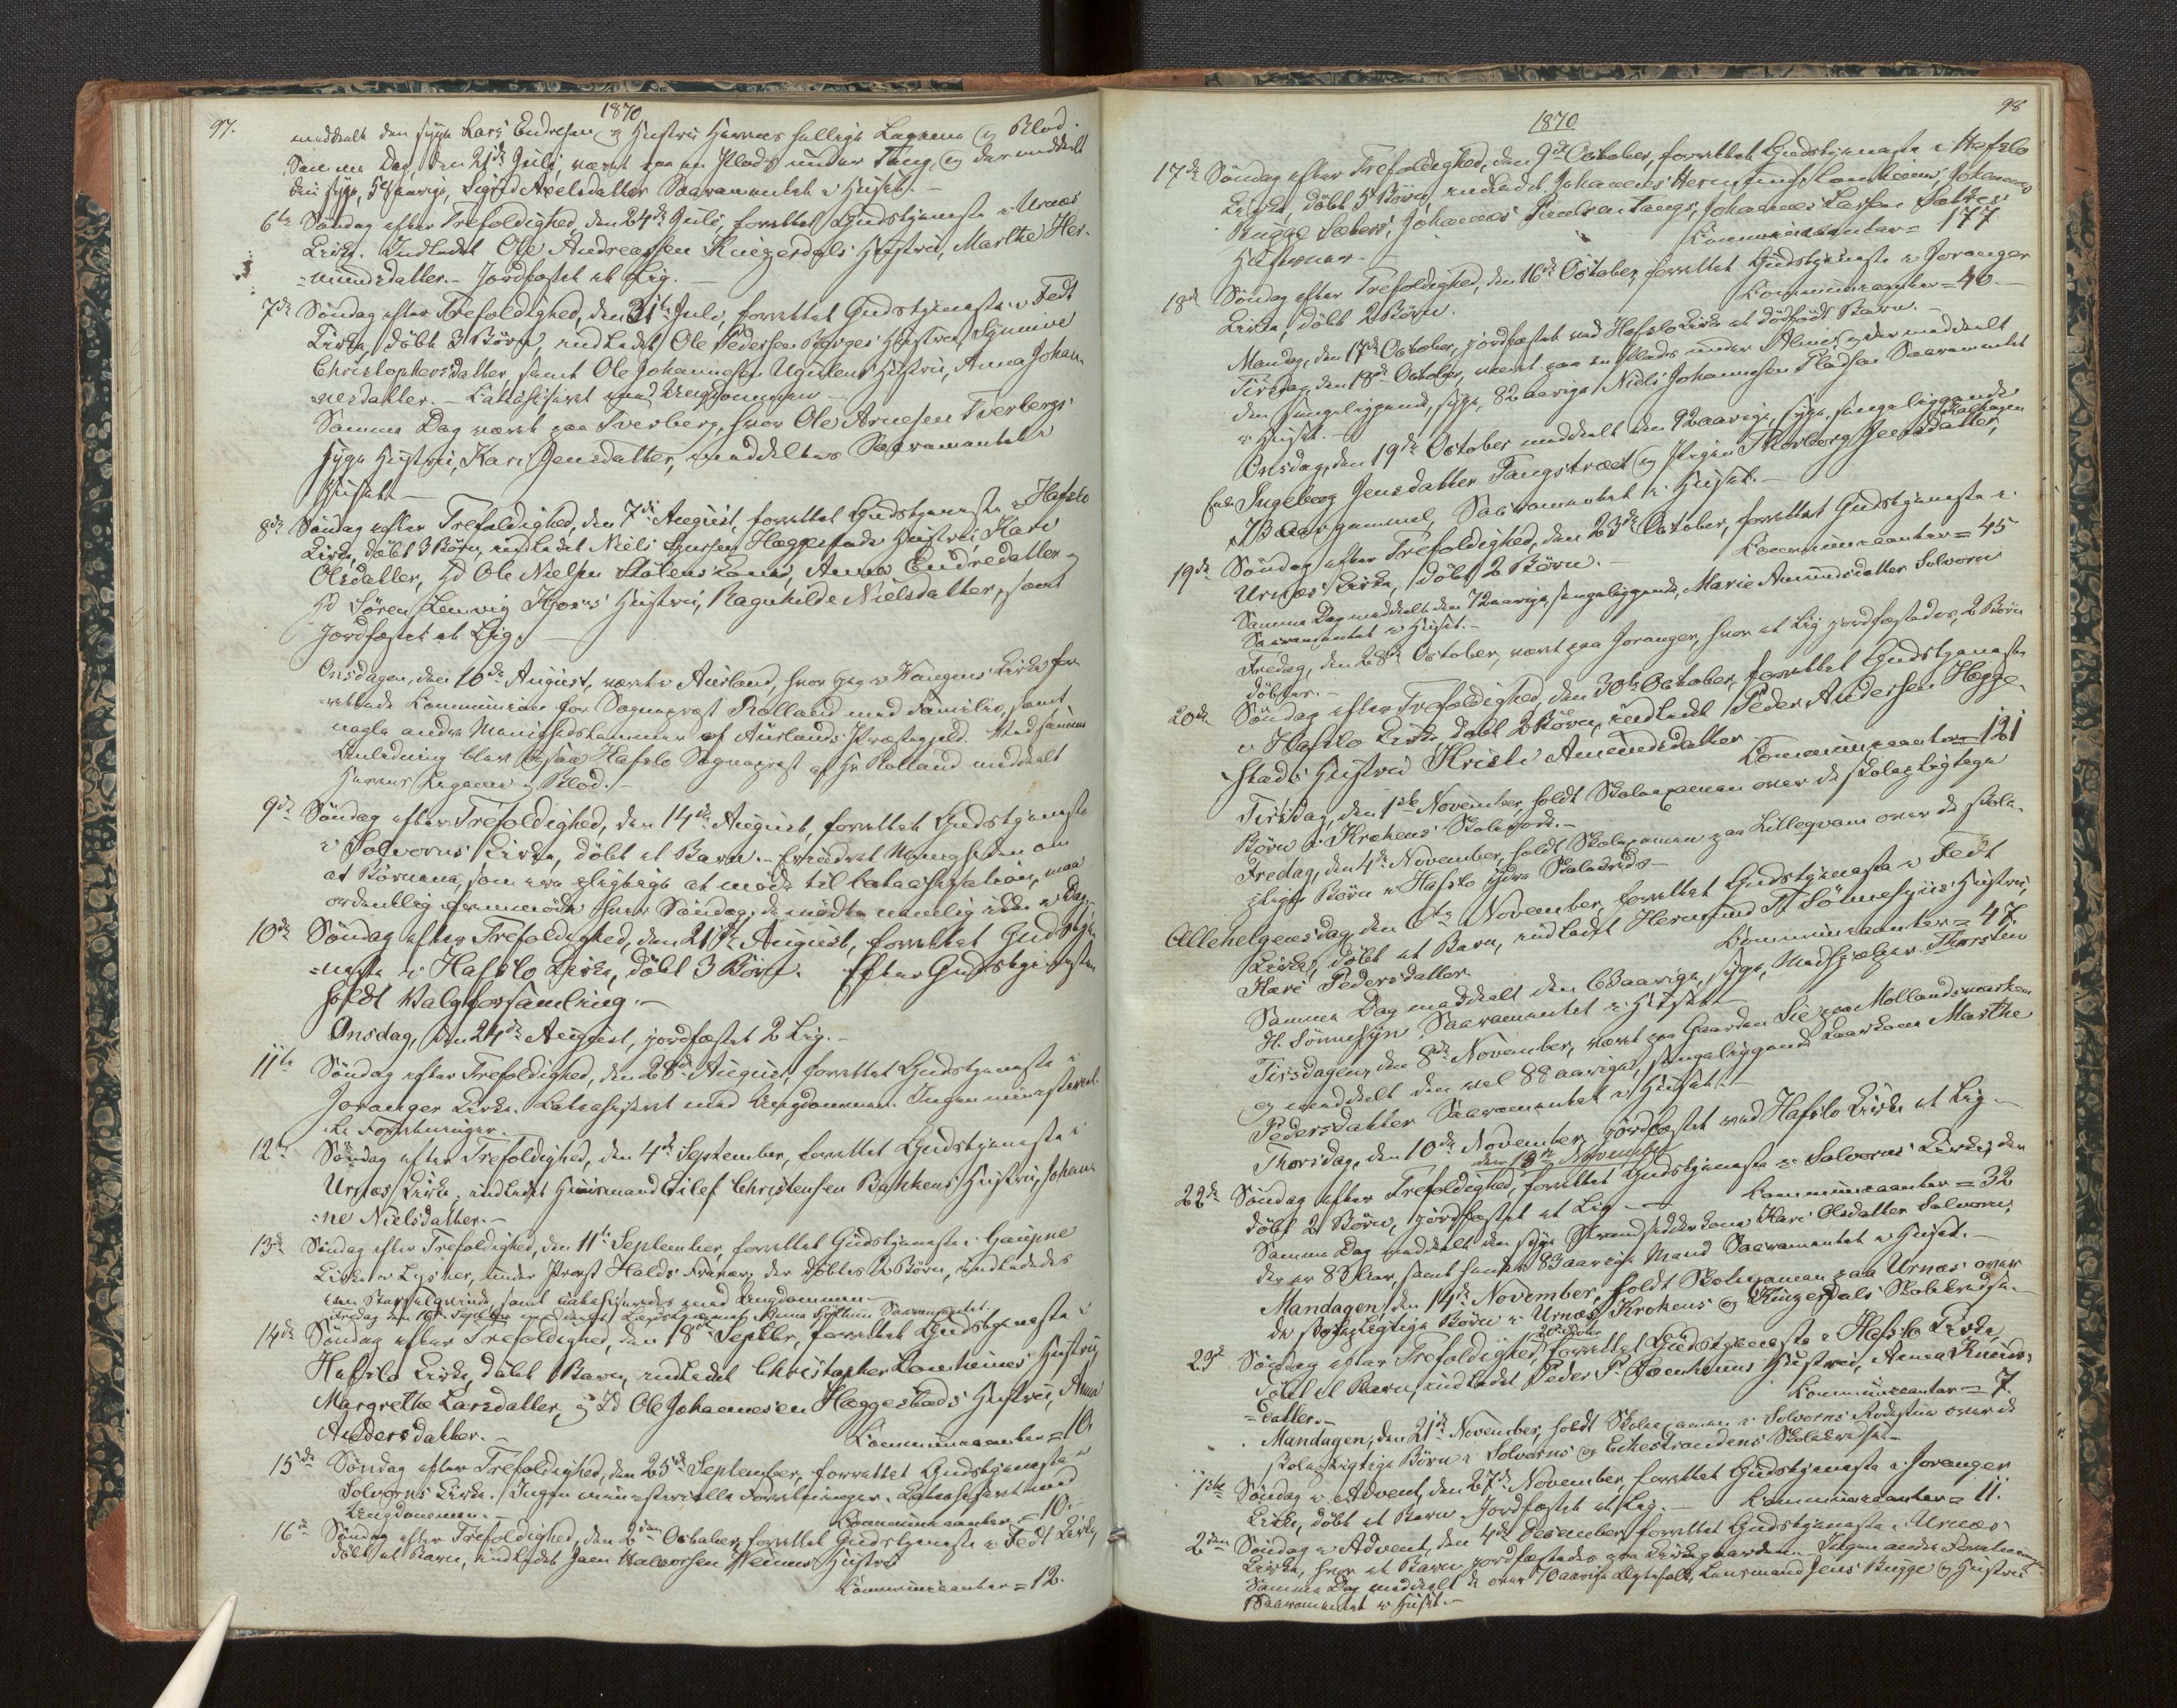 97.
1870
meddeelt den syge Lars Endresen og Hustru Herrens hellige Legeme og Blod.
Samme Dag, den 21de Juli, været paa en Plads under Tang, og der meddeelt
den syge, aarige, Sigrid Axelsdatter Sacramentet i Huset.-
6te Søndag efter Trefoldighed, den 24de Juli, forrettet Gudstjeneste i Urnæs
Kirke. Indledet Ole Andreassen Kinzerdals Hustru, Marthe Her-
=mundsdatter.- Jordfæstet et Lig.
7de Søndag efter Trefoldighed, den 31te Juli, forrettet Gudstjeneste i Fedt
Kirke, døbt 3 Børn, indledet Ole Pedersen Berges Hustru, Synnive
Christophersdatter, samt Ole Johannesen Ugulens Hustru, Anna Johan-
=nesdatter.- Catechiseret med Ungdommen.-
Samme Dag været paa Tverberg, hvor Ole Arnesen Tverbergs
syge Hustru, Kari Jensdatter, meddeltes Sacramentet i
Huset.-
8de Søndag efter Trefoldighed, den 7de August, forrettet Gudstjeneste i Hafslo
Kirke, døbt 3 Børn, indledet Niels Hæggestads Hustru Kari
Olsdatter, Hd Ole Nielsen Kone, Anna Endredatter og
Hd Søren Lenvig Hustru, Ragnhilde Nielsdatter, samt
Jordfæstet et Lig.
Onsdagen, den 10de August, været i Aurland, hvor jeg i Wangens Kirke for-
=rettede Communion for Sogneprest Rolland med Familie, samt
nogle andre Menighedslemmer af Aurlands Præstegjeld. Ved samme
Anledning blev ogsaa Hafslo Sogneprest af Hr Rolland meddeelt
Herrens Legeme og Blod.-
9de Søndag efter Trefoldighed, den 14de August, forrettet Gudstjeneste
i Solvorns Kirke, døbt et Barn.- Erindret Menigheden om
at Børnene, som ere pligtige at møde til Catechisation, maa
ordentlig fremmøde hver Søndag, da mødte nemlig ikke i Dag.-
10de Søndag efter Trefoldighed, den 21de August, forrettet Gudstje-
=neste i Hafslo Kirke, døbt 3 Børn. Efter Gudstjenesten
holdt Valgforsamling.-
Onsdag, den 24de August, jordfæstet 2 Lig.-
11te Søndag efter Trefoldighed, den 28de August, forrettet Gudstjeneste i
Joranger Kirke. Catechiseret med Ungdommen. Ingen ministeriel-
=le Forretninger.-
12te Søndag efter Trefoldighed, den 4de September, forrettet Gudstjeneste i
Urnæs Kirke, indledet Huusmand Eilef Christensen Bakkens Hustru, Johan-
=ne Nielsdatter.-
13de Søndag efter Trefoldighed, den 11te September, forrettet Gudstjeneste i Gaupne
Kirke i Lyster, under Provst Halds Fravær, der døbtes 2 Børn, indledede
en , samt catechiseredes med Ungdommen.
Fredag den 16de September meddeelt Anna Sacramentet.
14de Søndag efter Trefoldighed, den 18de Septbr, forrettet Gudstjeneste i
Hafslo Kirke, døbt Barn, indledet Christopher Lomheims Hustru
Margrethe Larsdatter, og Hd Ole Johannesen Hæggestads Hustru, Anna
Andersdatter.- Communicanter = 10.
15de Søndag efter Trefoldighed, den 25de September, forrettet Gudstjeneste i
Solvorns Kirke. Ingen ministerielle Forretninger. Catechiseret med
Ungdommen.- Communicanter = 10.-
16de Søndag efter Trefoldighed, den 2den October, forrettet Gudstjeneste i Fedt Kirke,
døbt et Barn, indledet Halvorsen Hustru
Communicanter = 12.
98
1870
17de Søndag efter Trefoldighed, den 9de October, forrettet Gudstjeneste i Hafslo
Kirke, døbt 5 Børn, indledet Johannes Hermunds Lomheims, Johannes
Bugge Johannes Tangs, Johannes Larsen
Hustruer.- Communicanter = 177
18de Søndag efter Trefoldighed, den 16de October, forrettet Gudstjeneste i Joranger
Kirke, døbt 2 Børn. Communicanter = 40.-
Mandag, den 17de October, jordfæstet ved Hafslo Kirke et dødfødt Barn.-
Tirsdag, den 18de October, været paa en Plads under Alme, og der meddeelt
den sengeliggende, syge, 82aarige Niels Johannesen Pladsen Sacramentet
i Huset.-
Onsdag, den 19de October meddeelt den 92aarige, syge, sengeliggende
Enke Ingeborg Jensdatter Tangstræet og Pigen Thorborg Jensdatter,
73 aar gammel, Sacramentet i Huset.-
19de Søndag efter Trefoldighed, den 23de October, forrettet Gudstjeneste i
Urnæs Kirke, døbt 2 Børn.- Communicanter = 45
Samme Dag meddeelt den 72aarige, sengeliggende, Marie Amundsdatter Solvorn
Sacramentet i Huset.-
Fredag, den 28de October, været paa Joranger, hvor et Lig jordfæstedes, 2 Børn
døbtes.-
20de Søndag efter Trefoldighed, den 30te October, forrettet Gudstjeneste
i Hafslo Kirke, døbt 2 Børn, indledet Peder Andersen Hægge-
stads Hustru Kristi Amundsdatter. Communicanter = 121
Tirsdag, den 1ste November, holdt Skoleexamen over de skolepligtige
Børn i Krokens Skolekreds.-
Fredag, den 4de November, holdt Skoleexamen paa Lillegvam over de skole-
pligtige Børn i Hafslo Skolekreds.-
Allehelgensdag, den 6te November, forrettet Gudstjeneste i Fedt
Kirke, døbt et Barn, indledet Hermund Sønnesyns Hustru,
Kari Pedersdatter. Communicanter = 47.
Samme Dag meddeelt den 63aarige, syge, Thorsten
H. Sønnesyn Sacramentet i Huset.-
Tirsdagen, den 8de November, været paa Gaarden Lie paa Mollandsmarken
og meddeelt den vel 88aarige, sengeliggende Marthe
Pedersdatter Sacramentet i Huset.-
Thorsdag, den 10de November, jordfæstet ved Hafslo Kirke et Lig.-
den 13de November
22de Søndag efter Trefoldighed, forrettet Gudstjeneste i Solvorns Kirke, der
døbt 2 Børn, jordfæstet et Lig.- Communicanter = 32
Samme Dag meddeelt den syge Strandsidderkone Kari Olsdatter Solvorn,
der er 85 Aar, samt hendes 83aarige Mand Sacramentet i Huset.-
Mandagen, den 14de November, holdt Skoleexamen paa Urnæs over
de skolepligtige Børn i Urnæs, Krokens og Kinzerdals Skolekredse.-
23de Søndag efter Trefoldighed, forrettet Gudstjeneste i Hafslo Kirke,
døbt et Barn, indledet Peder P. Lomheims Hustru, Anna Knuds-
=datter.- Communicanter = 7.
Mandagen, den 21de November, holdt Skoleexamen i Solvorns over de
skolepligtige Børn i Solvorns og Eikestrandens Skolekredse.-
1ste Søndag i Advent, den 27de November, forrettet Gudstjeneste i Joranger
Kirke, døbt et Barn. Jordfæstet et Lig.- Communicanter = 11.
2den Søndag i Advent, den 4de December, forrettet Gudstjeneste i Urnæs
Kirke, hvor et Barn jordfæstedes paa Kirkegaarden. Ingen andre Forretninger.
Samme Dag meddeelt de over 70aarige Ægtefolk, Lensmand Jens Bugge og Hustru
Sacramentet i Huset.-